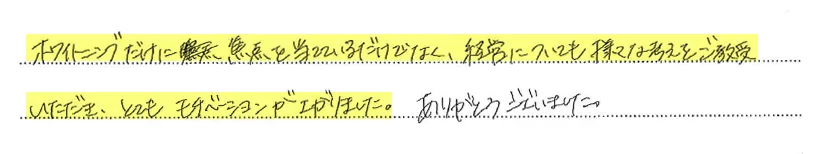 ホワイトニングだけに焦点を当てているだけでなく、経営についても様々な考えをご教授
いただき、とても モチベーションが上がりました。 ありがとうございました。